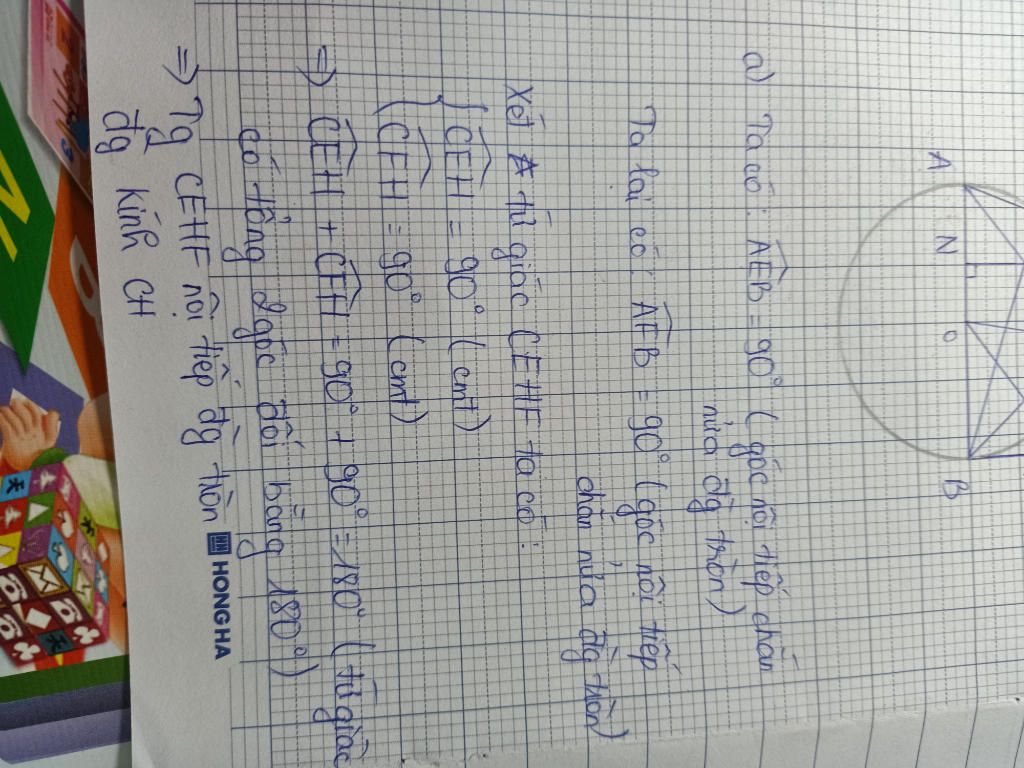 A
N
O
B
a) Ta có: AEB = 90° (góc nội tiếp chắn
nửa đg tròn)
Ta lại có: AFB = 90° (góc nội tiếp
chắn nửa đg tròn)
Xét tứ giác CEHF ta có:
{ CEH = 90° (cmt)
CFH = 90° (cmt)
=> CEH + CFH = 90° + 90° = 180° (tứ giác
có tổng 2 góc đối bằng 180°)
=> Tg CEHF nội tiếp đg tròn
đg kính CH
HONG HA